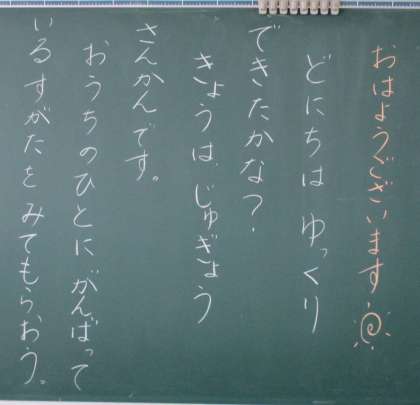 おはようございます
どにちは ゆっくり
できたかな?
きょうは、じゅぎょう
さんかんです。
おうちのひとに がんばって
いる すがたを みてもらおう。